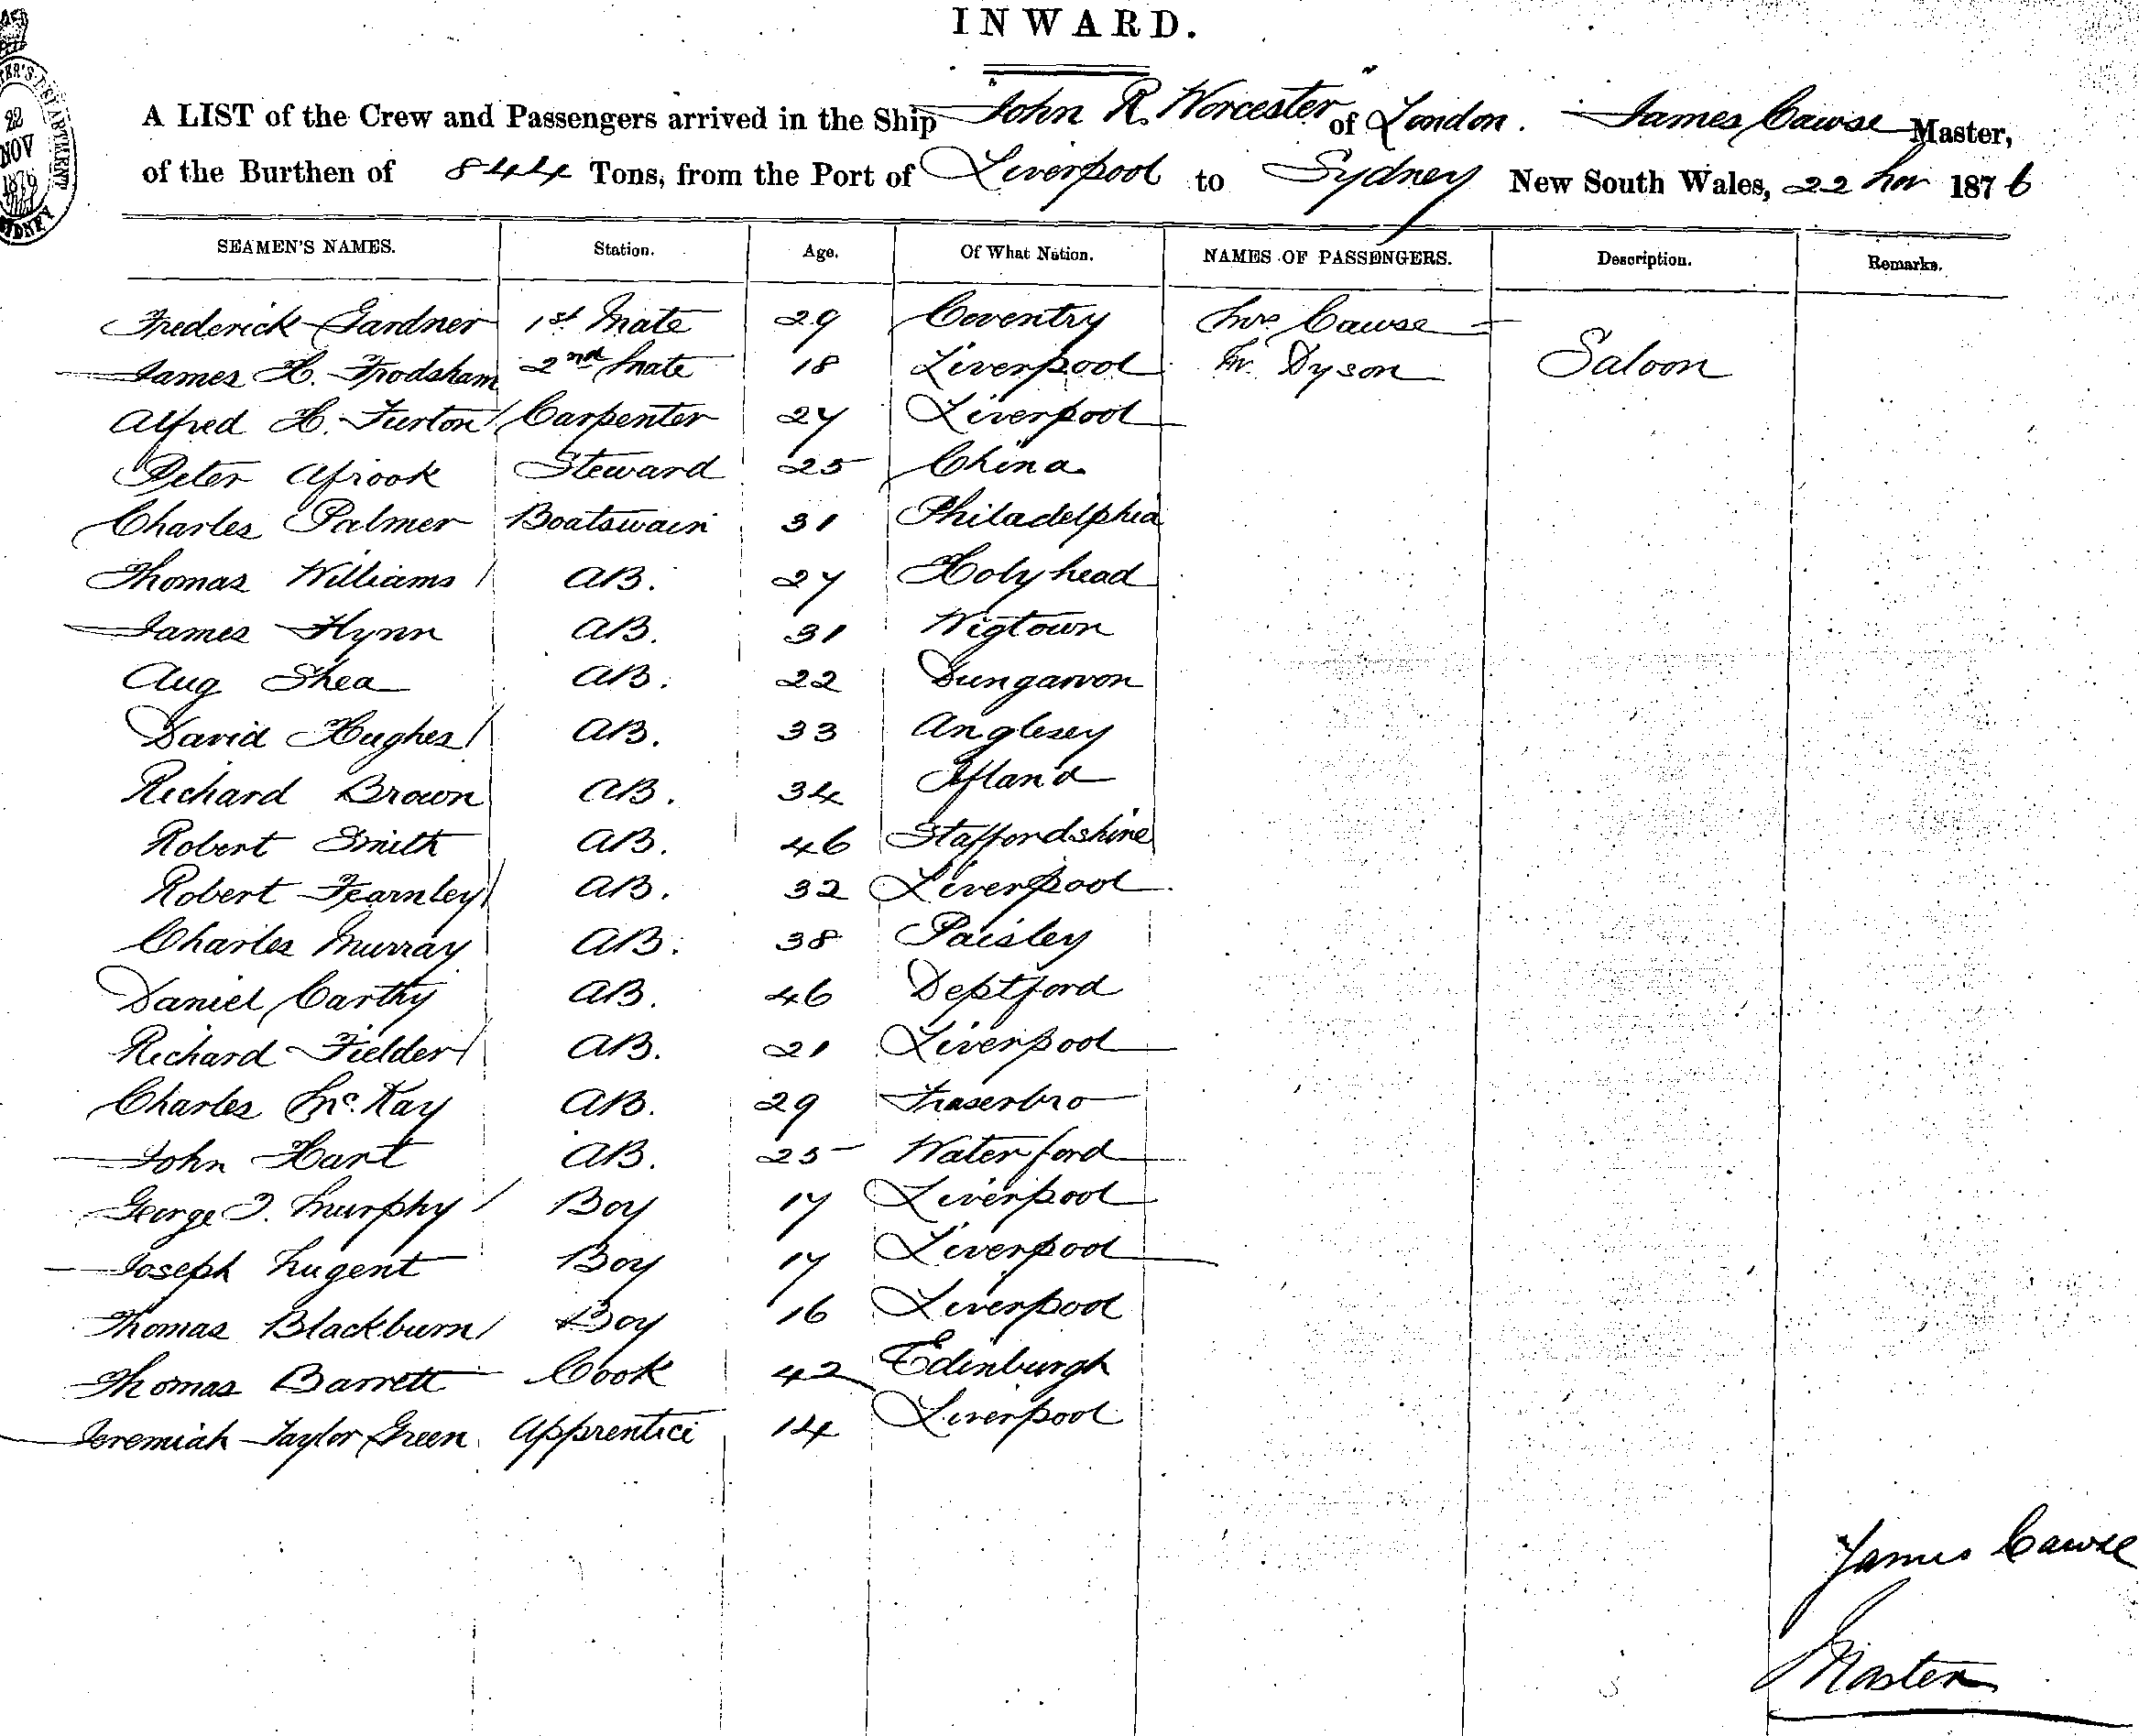 INWARD.
A LIST of the Crew and Passengers arrived in the Ship John R. Worcester of London. James Cawse Master,
of the Burthen of 844 Tons, from the Port of Liverpool to Sydney New South Wales, 22 Nov 1876
22 NOV 1876 SYDNEY
SEAMEN'S NAMES. Station. Age. Of What Nation. NAMES OF PASSENGERS. Description. Remarks.
Frederick Gardner 1st Mate 29 Coventry Mrs Cawse
James H. Frodsham 2nd Mate 18 Liverpool Mr. Dyson Saloon
Alfred H. Furton Carpenter 27 Liverpool
Peter Steward 25 China
Charles Palmer Boatswain 31 Philadelphia
Thomas Williams AB. 27 Holyhead
James Flynn AB. 31 Wigtown
Aug Shea AB. 22 Dungarvon
David Hughes AB. 33 Anglesey
Richard Brown AB. 34
Robert Smith AB. 46 Staffordshire
Robert Fearnley AB. 32 Liverpool
Charles Murray AB. 38 Paisley
Daniel Carthy AB. 46 Deptford
Richard Fielder AB. 21 Liverpool
Charles McKay AB. 29 Fraserbro
John Hart AB. 25 Waterford
George J. Murphy Boy 17 Liverpool
Joseph Nugent Boy 17 Liverpool
Thomas Blackburn Boy 16 Liverpool
Thomas Barrett Cook 42 Edinburgh
Jeremiah Taylor Green Apprentice 14 Liverpool
James Cawse
Master